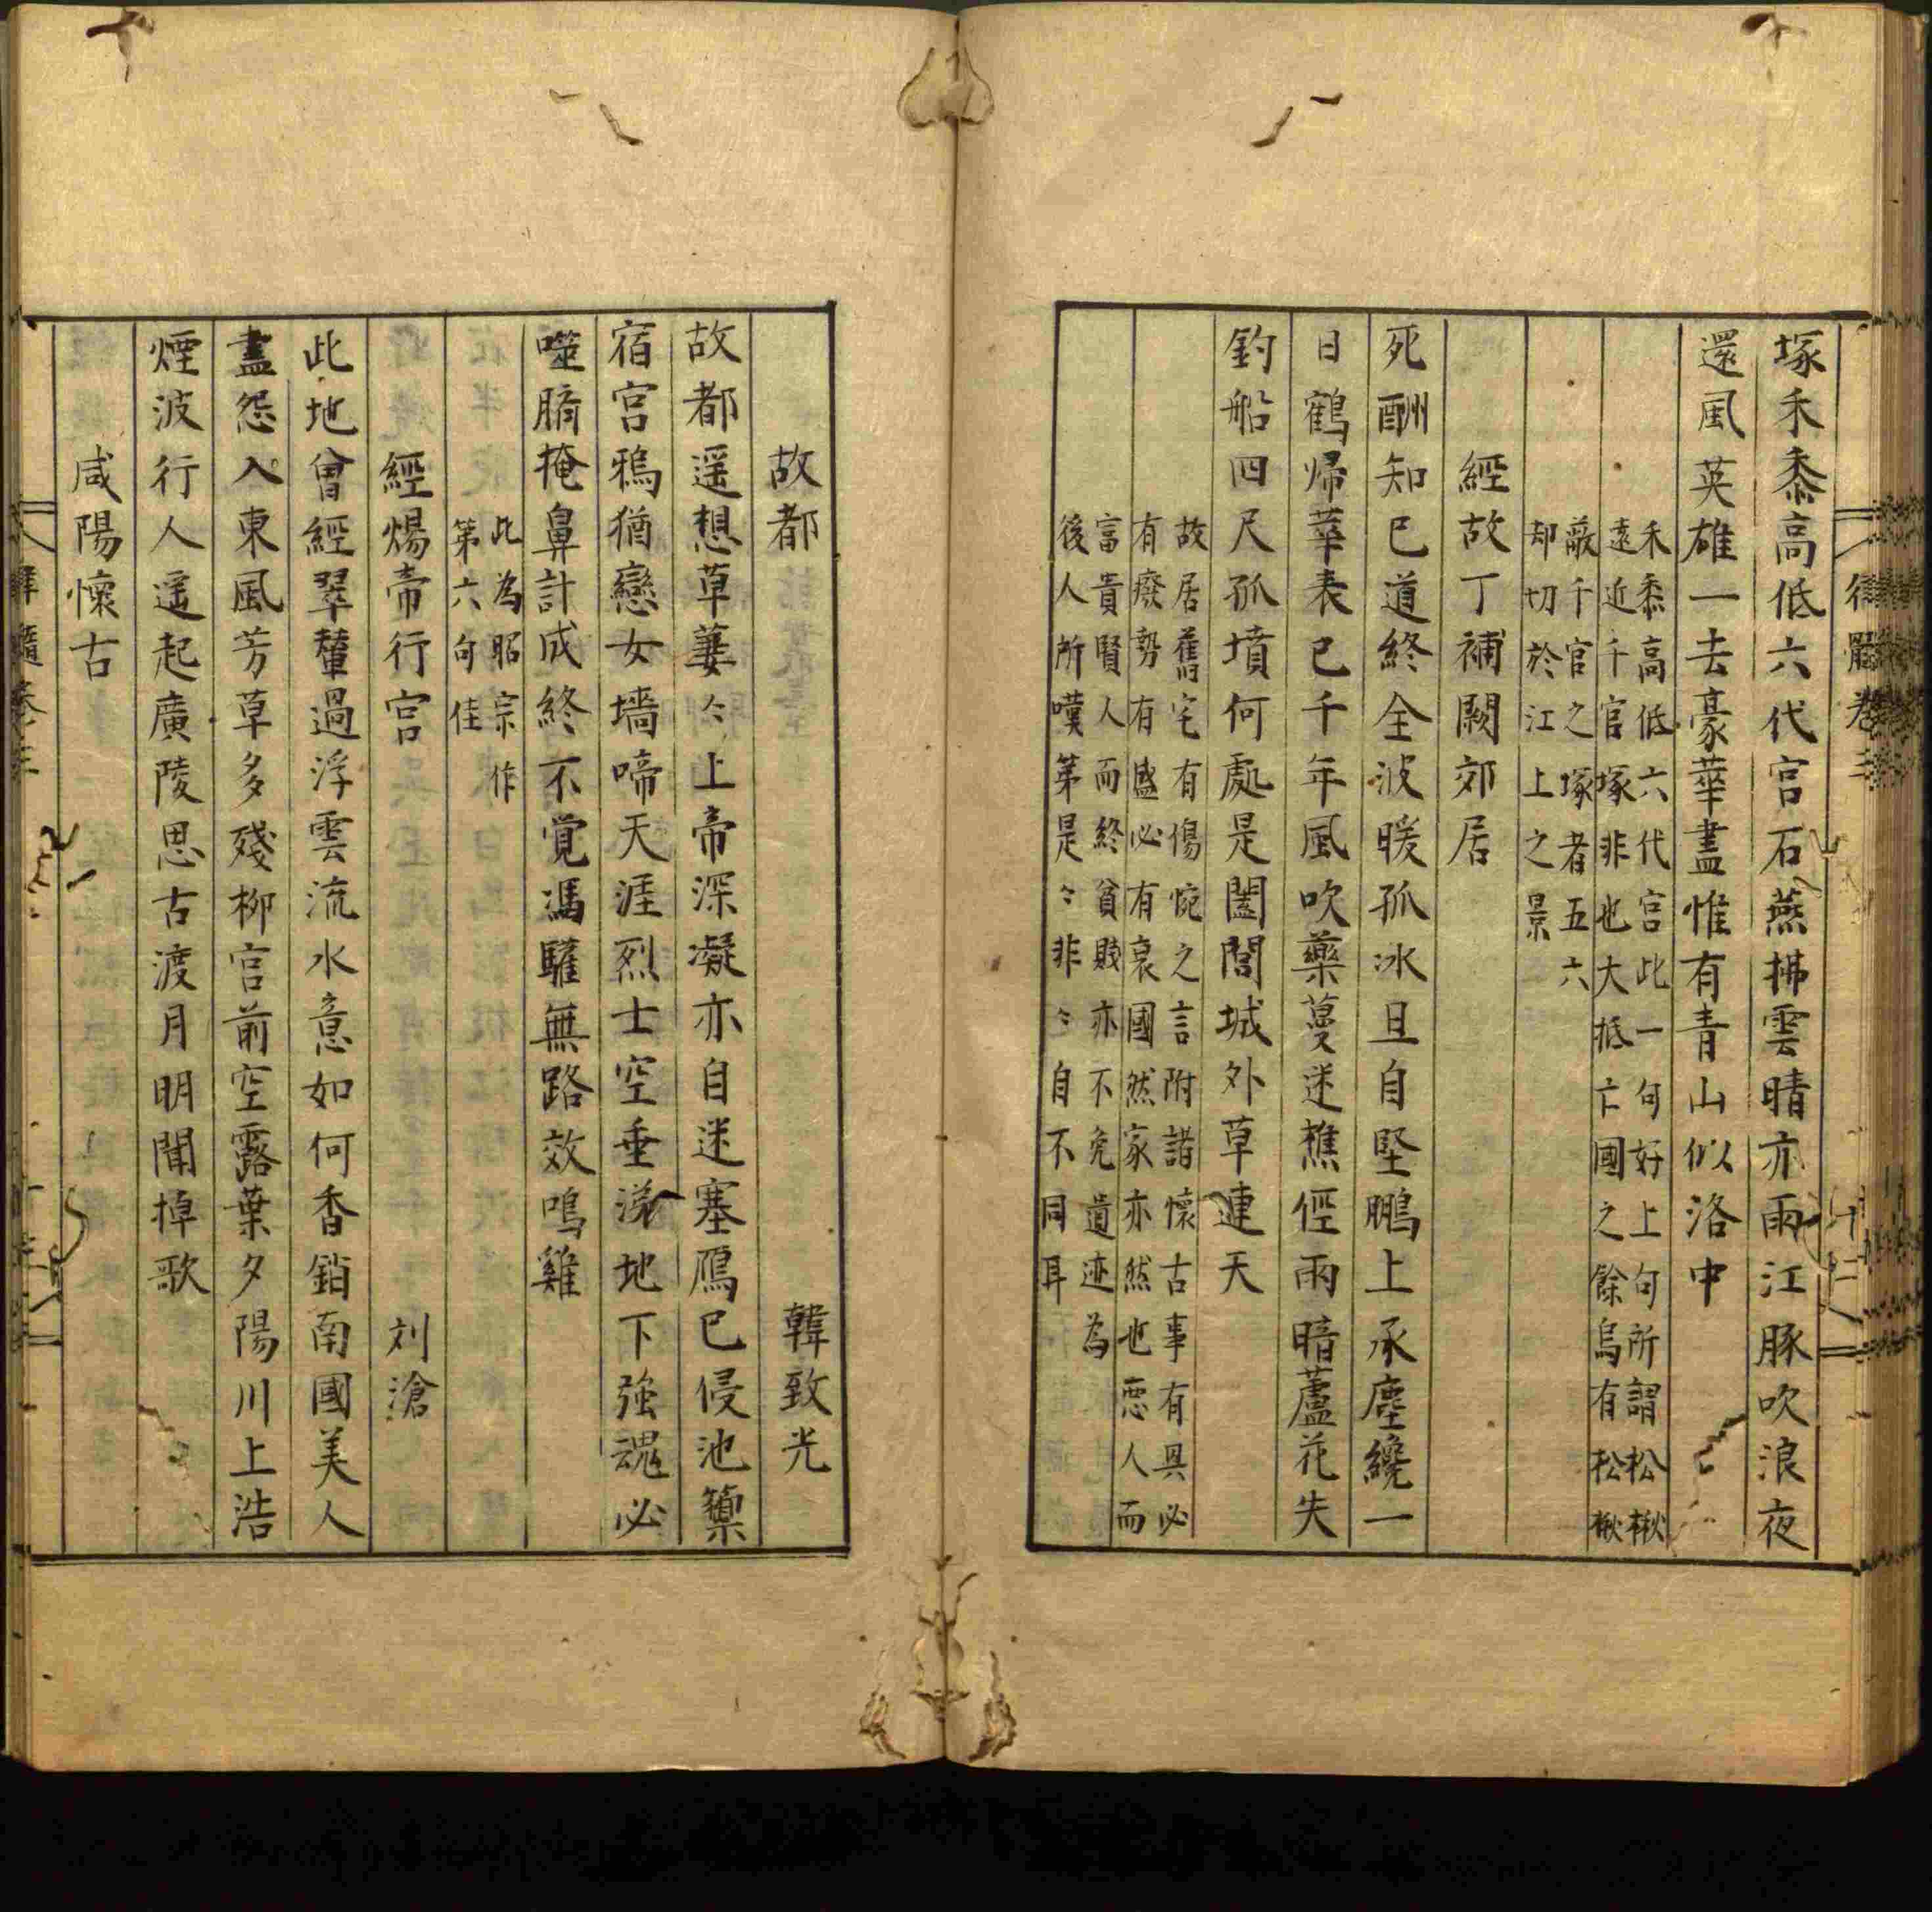 塚禾黍高低六代宫石燕拂雲晴亦雨江豚吹浪夜
還風英雄一去豪華盡惟有青山似洛中
禾黍高低六代宫此一句好上句所謂松楸
遠近千官塚非也大抵亡國之餘烏有松楸
蔽千官之塚者五六
却切於江上之景
經故丁補闕郊居
死酬知已道終全波暖孤冰且自堅鵬上承塵纔一
日鶴歸華表已千年風吹藥蔓迷樵徑雨暗蘆花失
釣船四尺孤墳何處是闔閭城外草連天
故居舊宅有傷惋之言附諸懷古事有興必
有廢勢有盛必有衰國然家亦然也惡人而
富貴賢人而終貧賤亦不免遺迹為
後人所嘆第是〻非〻自不同耳
故都
韓致光
故都遥想草萋〻上帝深凝亦自迷塞鴈已侵池籞
宿宫鴉猶戀女墻啼天涯烈士空垂涕地下強魂必
噬臍掩鼻計成終不覚馮驩無路效鳴雞
此為昭宗作
第六句佳
經煬帝行宫
刘滄
此地曾經翠輦過浮雲流水意如何香銷南國美人
盡怨入東風芳草多殘柳宫前空露葉夕陽川上浩
煙波行人遥起廣陵思古渡月明聞掉歌
咸陽懷古